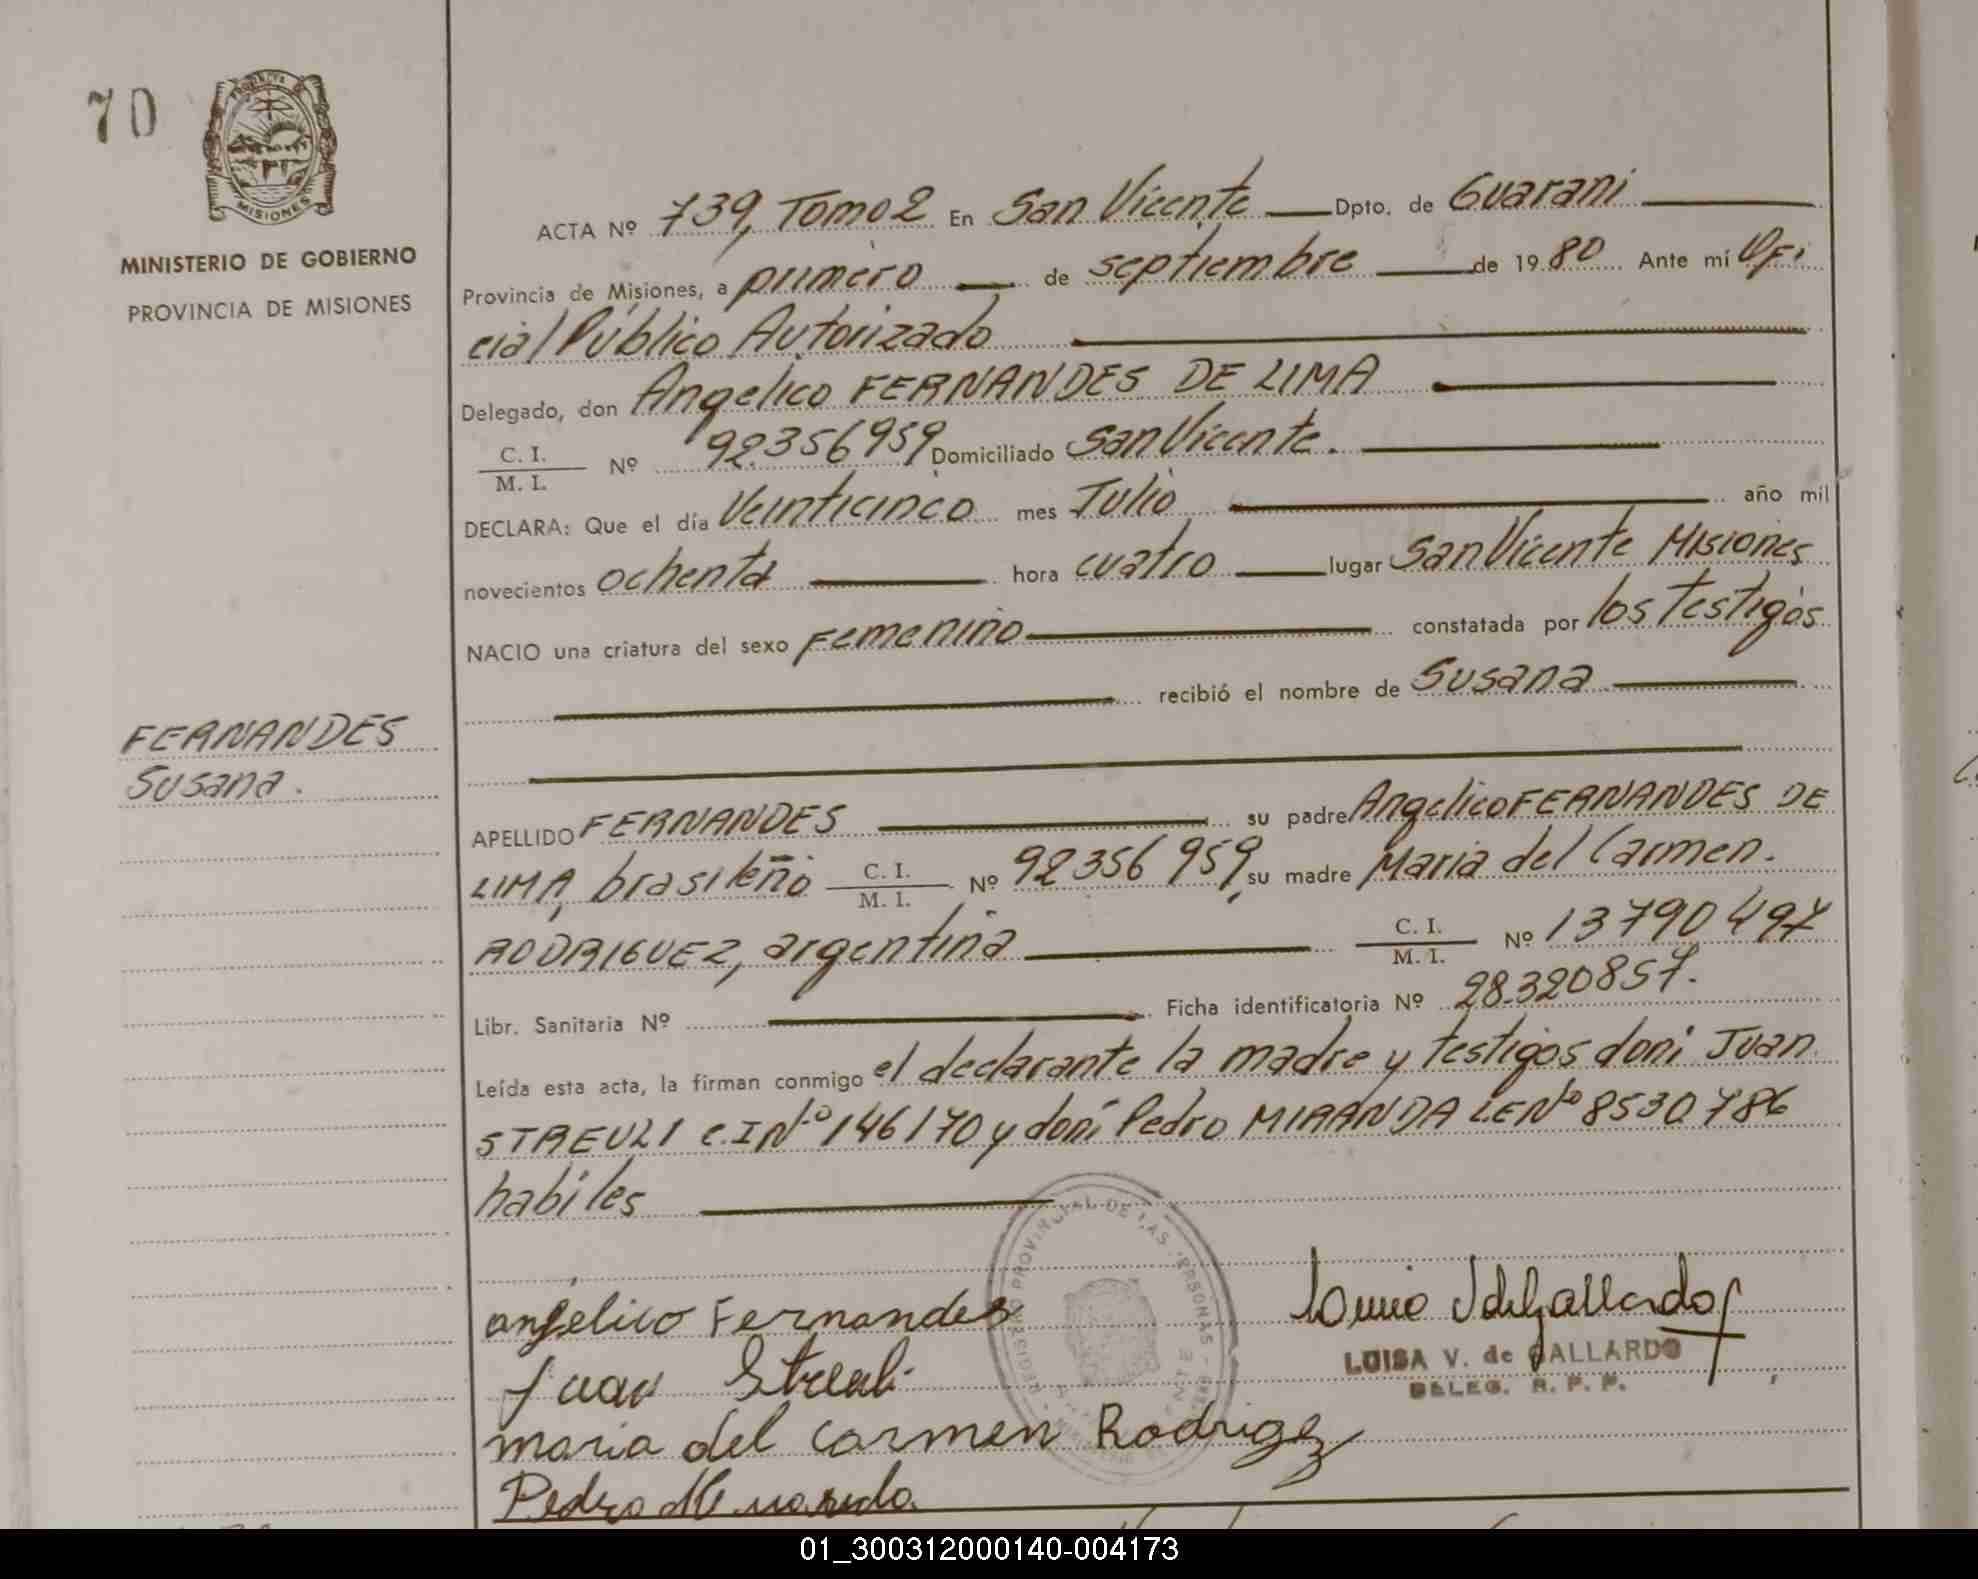 70
PROVINCIA
MISIONES
MINISTERIO DE GOBIERNO
PROVINCIA DE MISIONES
ACTA Nº 739, Tomo 2 En San Vicente Dpto. de Guarani
Provincia de Misiones, a primero de septiembre de 1980 Ante mí Ofi
cial Público Autorizado
Delegado, don Angelico FERNANDES DE LIMA
C. I.
M. I. Nº 92.356959 Domiciliado San Vicente.
DECLARA: Que el día Veinticinco mes Julio año mil
novecientos ochenta hora cuatro lugar San Vicente Misiones
NACIO una criatura del sexo Femenino constatada por los testigos
recibió el nombre de Susana
FERNANDES
Susana.
APELLIDO FERNANDES su padre Angelico FERNANDES DE
LIMA, brasileño C. I. M. I. Nº 92356959, su madre Maria del Carmen.
RODRIGUEZ, argentina C. I. M. I. Nº 13790497
Libr. Sanitaria Nº Ficha identificatoria Nº 28.320857.
Leída esta acta, la firman conmigo el declarante la madre y testigos doni Juan
STREULI C.I Nº 146170 y doni Pedro MIRANDA L.E Nº 8530786
habiles
PROVINCIAL DE LAS PERSONAS
angelico Fernandes
Juan Streuli
LUISA V. de GALLARDO
DELEG. R. P. P.
maria del carmen Rodrigez
Pedro Miranda
01_300312000140-004173